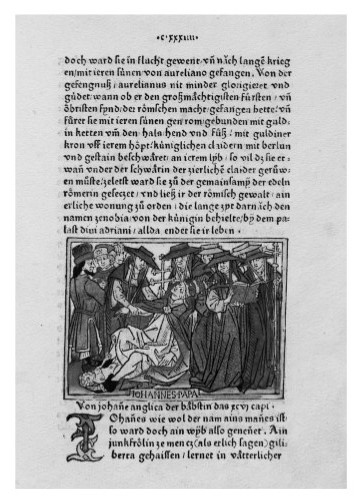 ·C·xxxiiii·
doch ward sie in flucht gewent· vñ nach langẽ krieg
en/mit ieren sünen von aureliano gefangen. Von der
gefengnuß/aurelianus nit minder glorigieret vnd
güdet/wann ob er den großmächtigisten fürsten/vñ
öbristen fynd/der römschen macht/gefangen hette/vñ
füret sie mit ieren sünen gen rom/gebunden mit guld-
in ketten vm den hals/hend vnd füß/mit guldiner
kron vff ierem höpt/küniglichen claidern mit berlun
vnd gestain beschwäret/an ierem lyb/so vil dz sie er-
wañ vnder der schwärin der zierlichẽ claider gerüw-
en müste/zeletst ward sie zů der gemainsamp der edeln
römeren gesetzet/vnd ließ ir der römisch gewalt/ain
erliche wonung zu orden/die lange zyt darnäch den
namen zenobia/von der künigin behielte/by dem pa-
last diui adriani/allda endet sie ir leben·
IOHANNES·PAPA
Von johañe anglica der bäbstin das xcvj capi·
IOhañes wie wol der nam ains mañes ist·
so ward doch ain wyb also genẽnet. Ain
junkfrölin ze mencz (als etlich sagen) gili-
berta gehaissen/lernet in vätterlicher